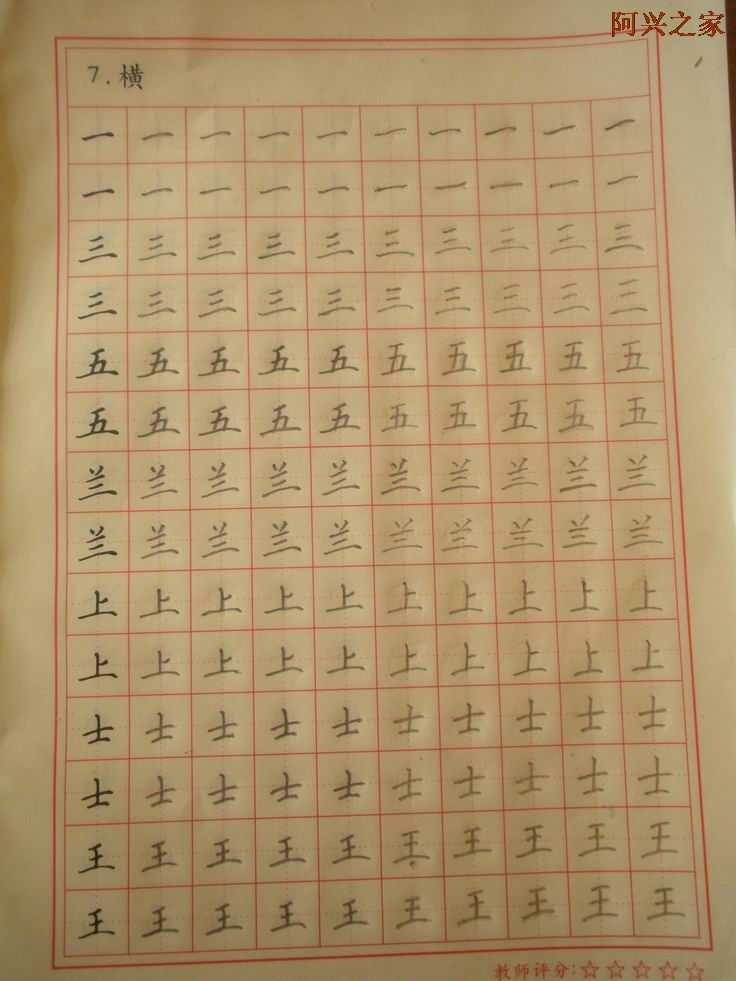 阿兴之家
7.横
一一一一一一一一一一
一一一一一一一一一一
三三三三三三三三三三
三三三三三三三三三三
五五五五五五五五五五
五五五五五五五五五五
兰兰兰兰兰兰兰兰兰兰
兰兰兰兰兰兰兰兰兰兰
上上上上上上上上上上
上上上上上上上上上上
士士士士士士士士士士
士士士士士士士士士士
王王王王王王王王王王
王王王王王王王王王王
教师评分:☆☆☆☆☆